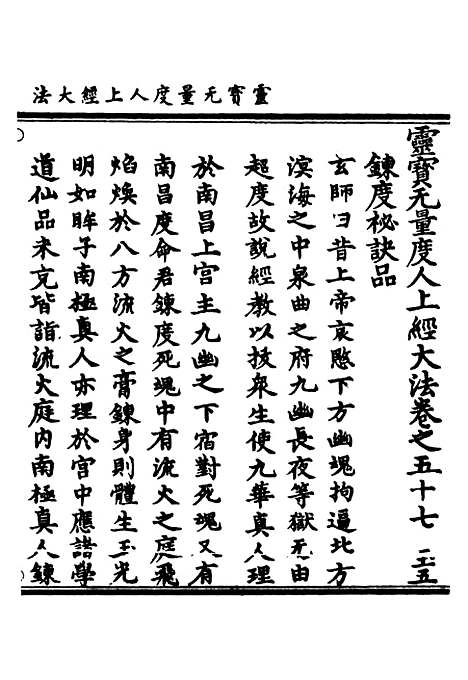 靈寶无量度人上經大法
靈寶无量度人上經大法卷之五十七 二五
鍊度祕訣品
玄師曰昔上帝哀愍下方幽魂拘逼北方
溟海之中泉曲之府九幽長夜等獄无由
超度故說經教以技衆生使九華真人理
於南昌上宮主九幽之下宿對死魂又有
南昌度命君鍊度死魂中有流火之庭飛
焰煥於八方流火之膏鍊身則體生玉光
明如眸子南極真人亦理於宮中應諸學
道仙品未充皆詣流火庭內南極真人鍊